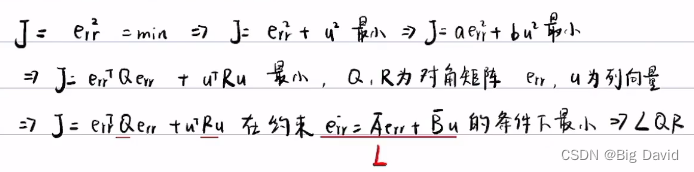 J = e_rr² = min ⇒ J = e_rr² + u² 最小 ⇒ J = ae_rr² + bu² 最小
⇒ J = e_rrᵀQe_rr + uᵀRu 最小, Q, R为对角矩阵 e_rr, u为列向量
⇒ J = e_rrᵀQe_rr + uᵀRu 在约束 ė_rr = Āe_rr + B̄u 的条件下最小 ⇒ LQR
L
CSDN @Big David